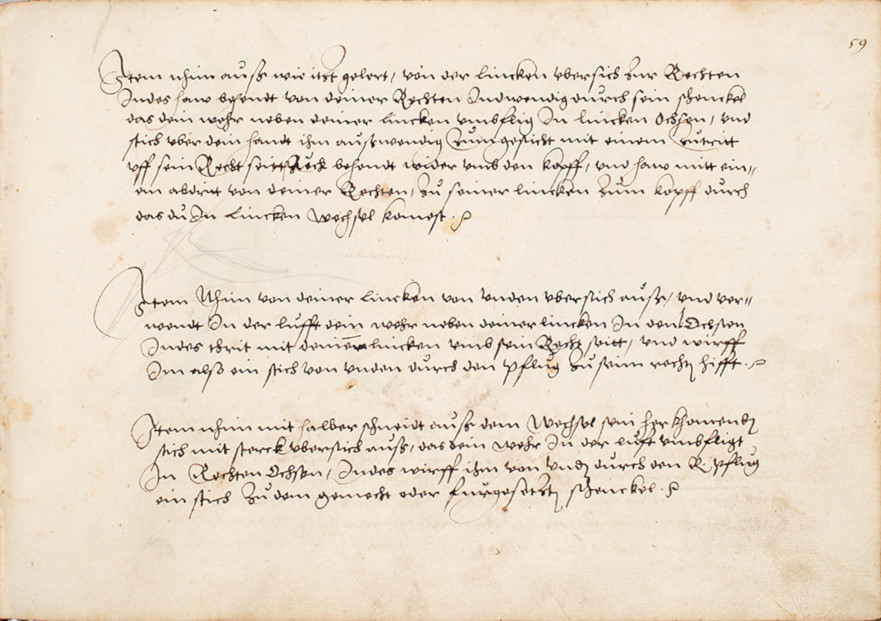 59
Item nhim auß wie itzt gelert, von der lincken vbersich zur Rechten
Indes haw behendt von deiner Rechten Indwendig durch sein schenckel
das dein wehr neben deiner lincken vmbflig In lincken Ochsen, vnd
stich vber dein handt ihm außwendig zum gesicht mit einem zutritt
vff sein Recht seitt, Ruck behendt wider vmb den kopff, vnd haw mitt ein„
em von deiner Rechten, zu seiner lincken zum kopff durch
das du In lincken Wechsel komest.
Item Nhim von deiner lincken von vnden vbersich auß, vnd ver„
wendt In der lufft dein wehr neben deiner lincken In den Ochsen
Indes thrit mit deiner lincken vmb sein Recht seitt, vnd wirff
Im also ein stich von vnden durch den pflug zu seinn recht hifft.
Item nhim mit halber schneidt auß dem Wechsel sein her khomendn
stich mit sterck vbersich auß, das dein wehr In der luft vmbfligt
In Rechten Ochsen, Indes wirff ihm von vndn durch den R. pflug
ein stich zu dem gemecht oder furgesetztn schenckel.